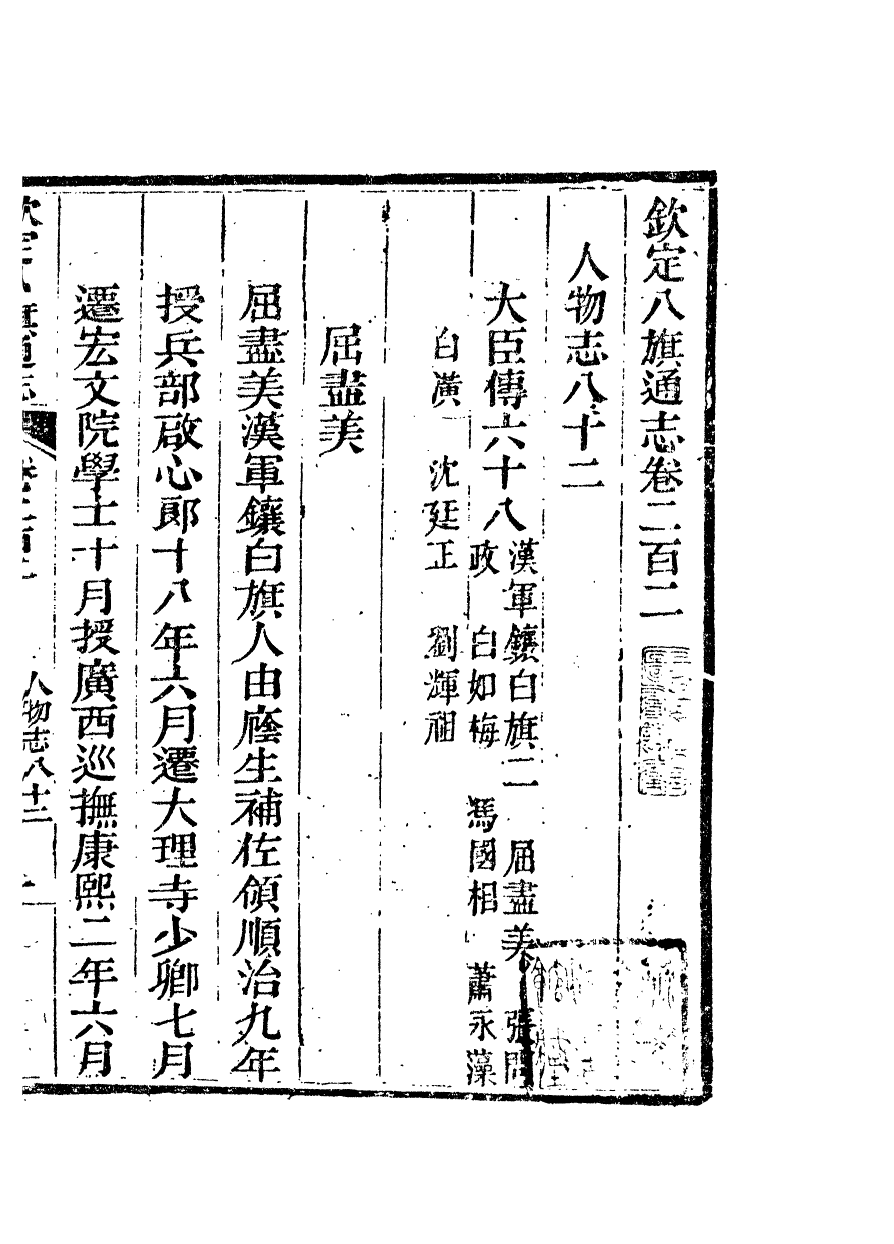 欽定八旗通志卷二百二
人物志八十二
大臣傳六十八
漢軍鑲白旗二 屈盡美 張問
政 白如梅 馮國相 蕭永藻
白潢 沈廷正 劉輝祖
屈盡美
屈盡美漢軍鑲白旗人由廕生補佐領順治九年
授兵部啟心郎十八年六月遷大理寺少卿七月
遷宏文院學士十月授廣西巡撫康熙二年六月
人物志八十二